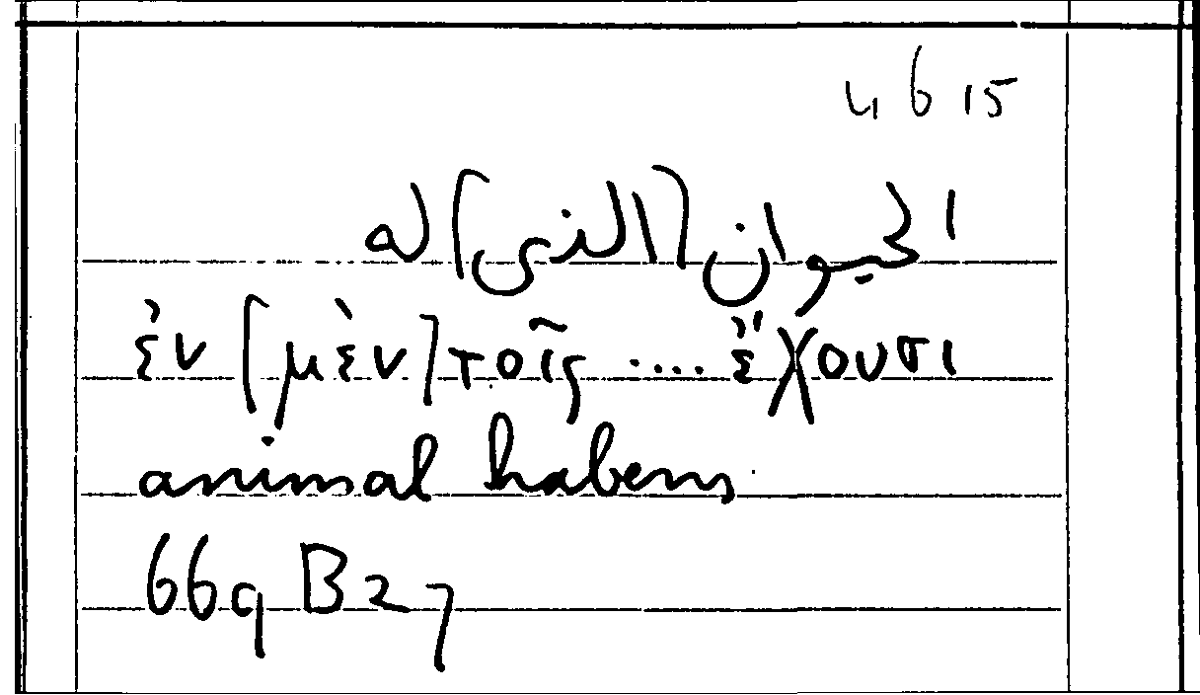 46 15
الحيوان [الذى] له
ἐν [μὲν] τοῖς ..... ἔχουσι
animal habens
669 B 27